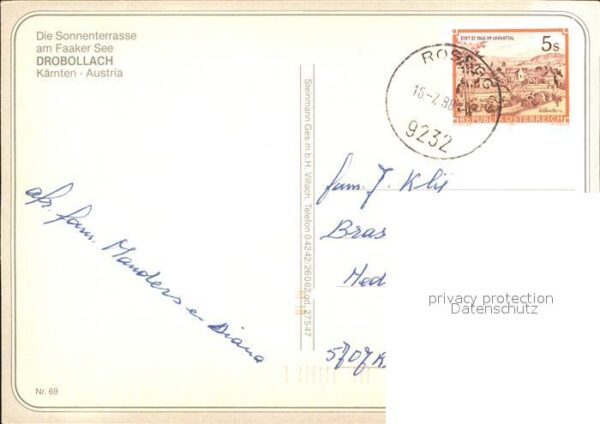 Die Sonnenterrasse
am Faaker See
DROBOLLACH
Kärnten - Austria
STIFT ST. PAUL IM LAVANTTAL
5 S
REPUBLIK ÖSTERREICH
ROSEGG
16-7.86
9232
Steinmann Ges.m.b.H. Villach, Telefon 04242 26062 od. 27547
afs. fam. Manders en Diana
fam. J. Klis
Bras
Med
5707 K
privacy protection
Datenschutz
Nr. 69